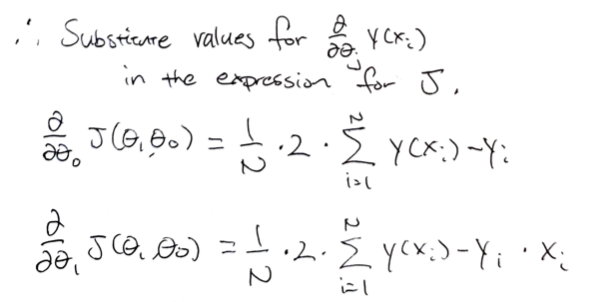 ∴ Substitute values for ∂/∂θj y(xi)
in the expression for J.
∂/∂θ0 J(θ1,θ0) = 1/N · 2 · Σ_{i=1}^{N} y(xi) - yi
∂/∂θ1 J(θ1,θ0) = 1/N · 2 · Σ_{i=1}^{N} y(xi) - yi · xi